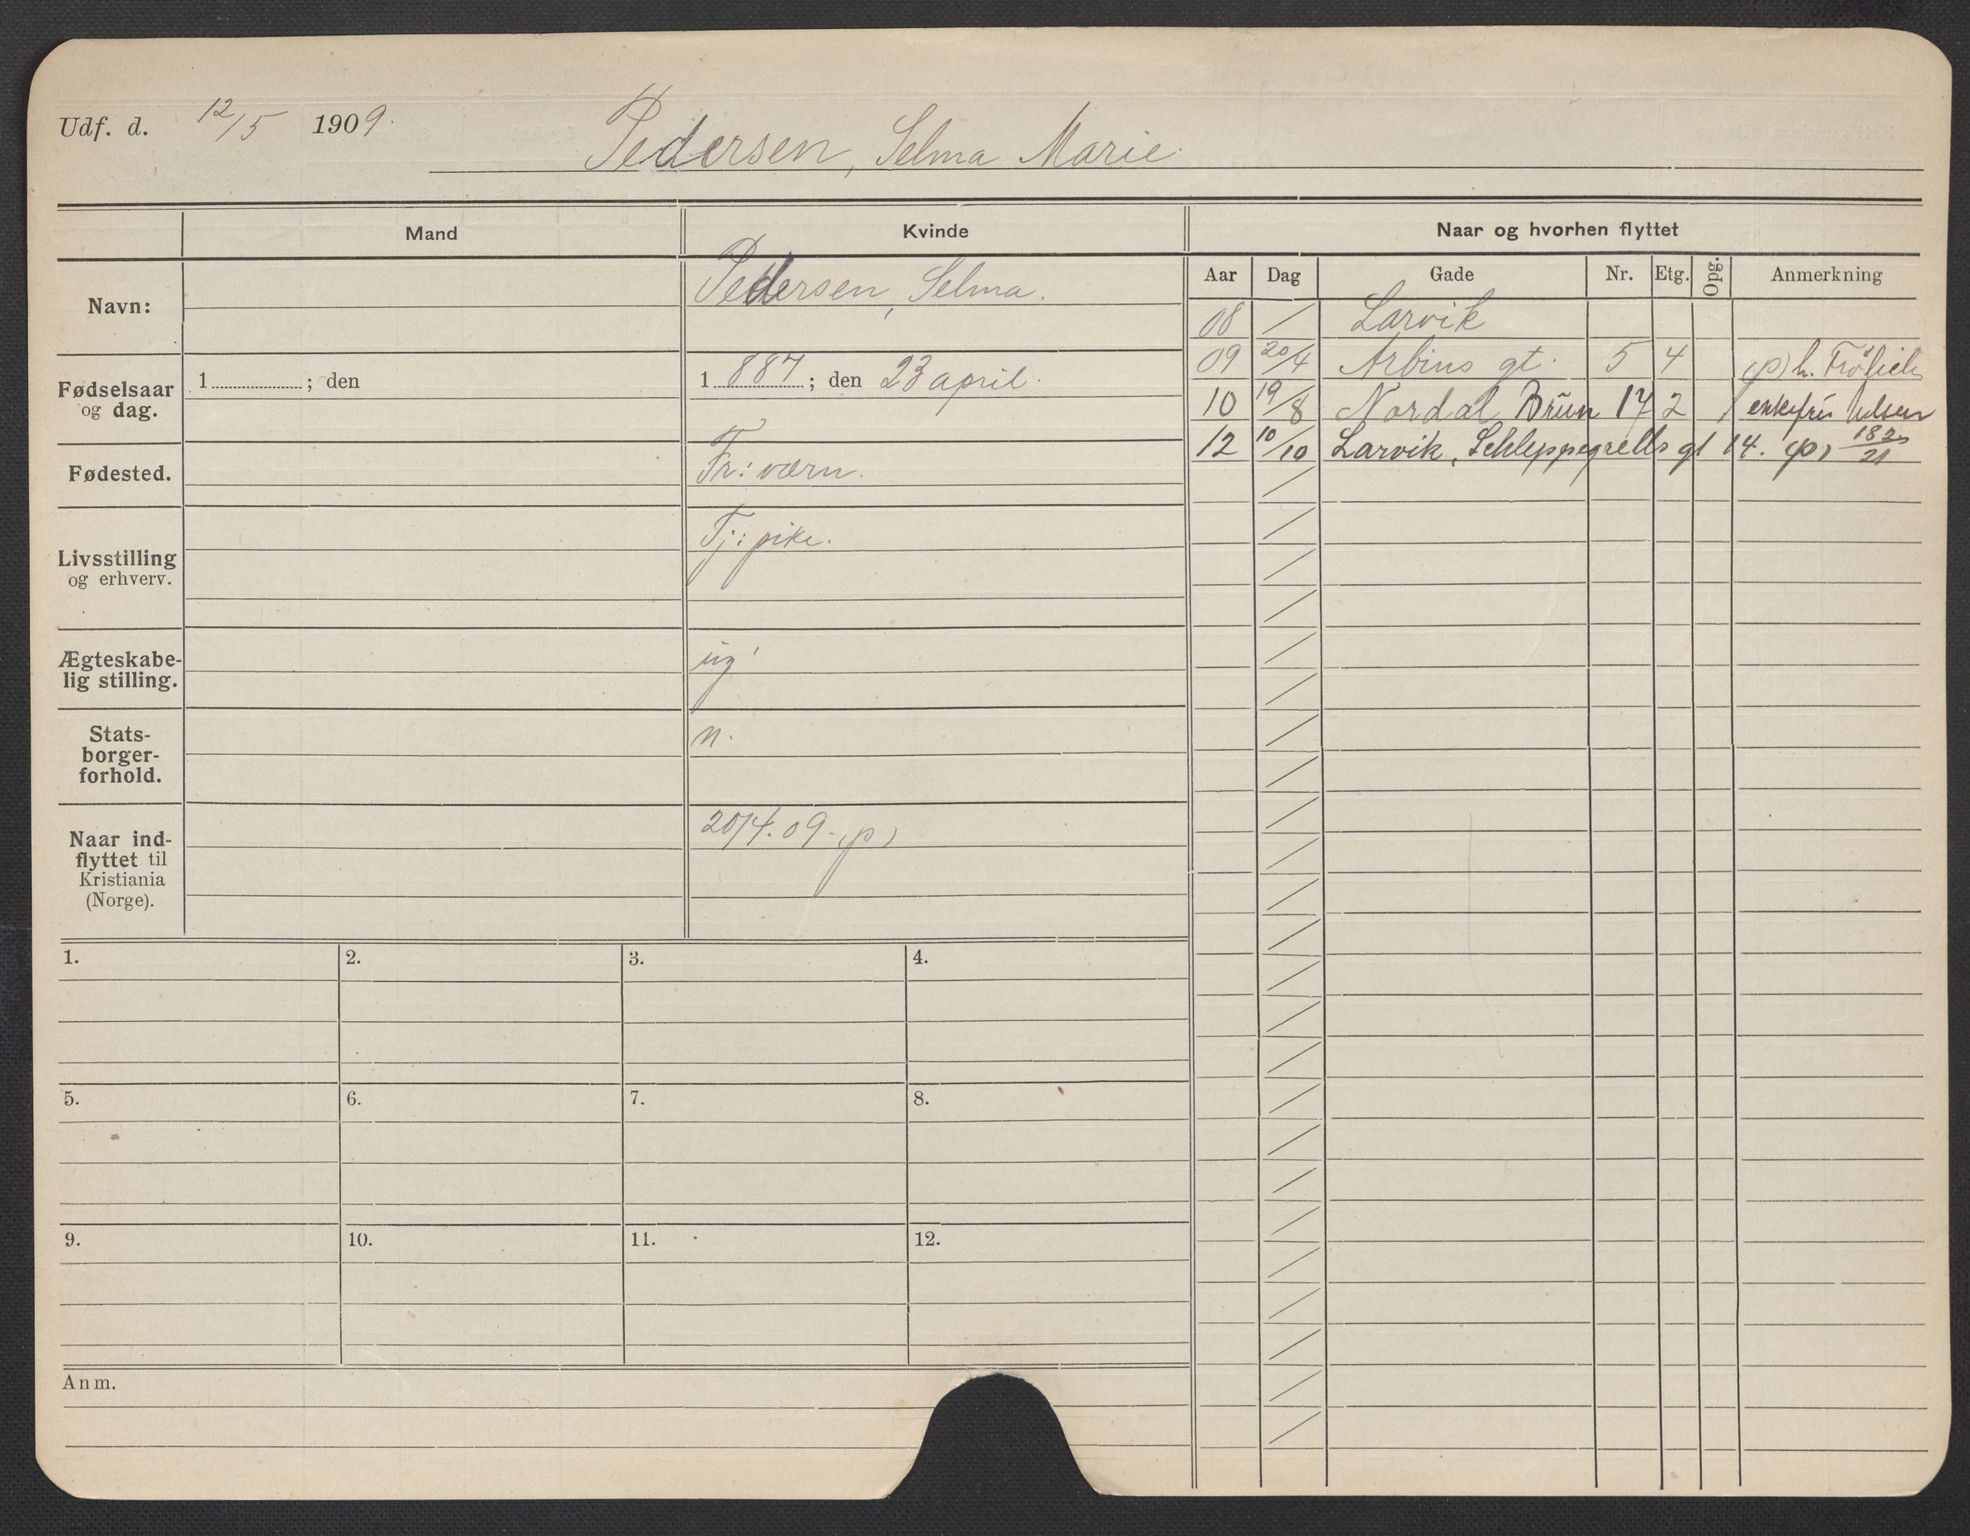 Udf. d. 12/5 1909. Pedersen, Selma Marie.
Mand Kvinde Naar og hvorhen flyttet
Aar Dag Gade Nr. Etg. Opg. Anmerkning
Navn: Pedersen, Selma.
08 Larvik
09 20/4 Arbins gt. 5 4 (p) h. Frölich
10 19/8 Nordal Brun 17 2 enkefru
12 10/10 Larvik, Schleppegrells gt 14. (p)
Fødselsaar
og dag.
1 ; den
1 887 ; den 23 april.
Fødested. Fr: værn.
Livsstilling
og erhverv.
Tj: pike.
Ægteskabe-
lig stilling.
ug
Stats-
borger-
forhold.
n.
Naar ind-
flyttet til
Kristiania
(Norge).
20/4. 09. (p)
1. 2. 3. 4.
5. 6. 7. 8.
9. 10. 11. 12.
Anm.